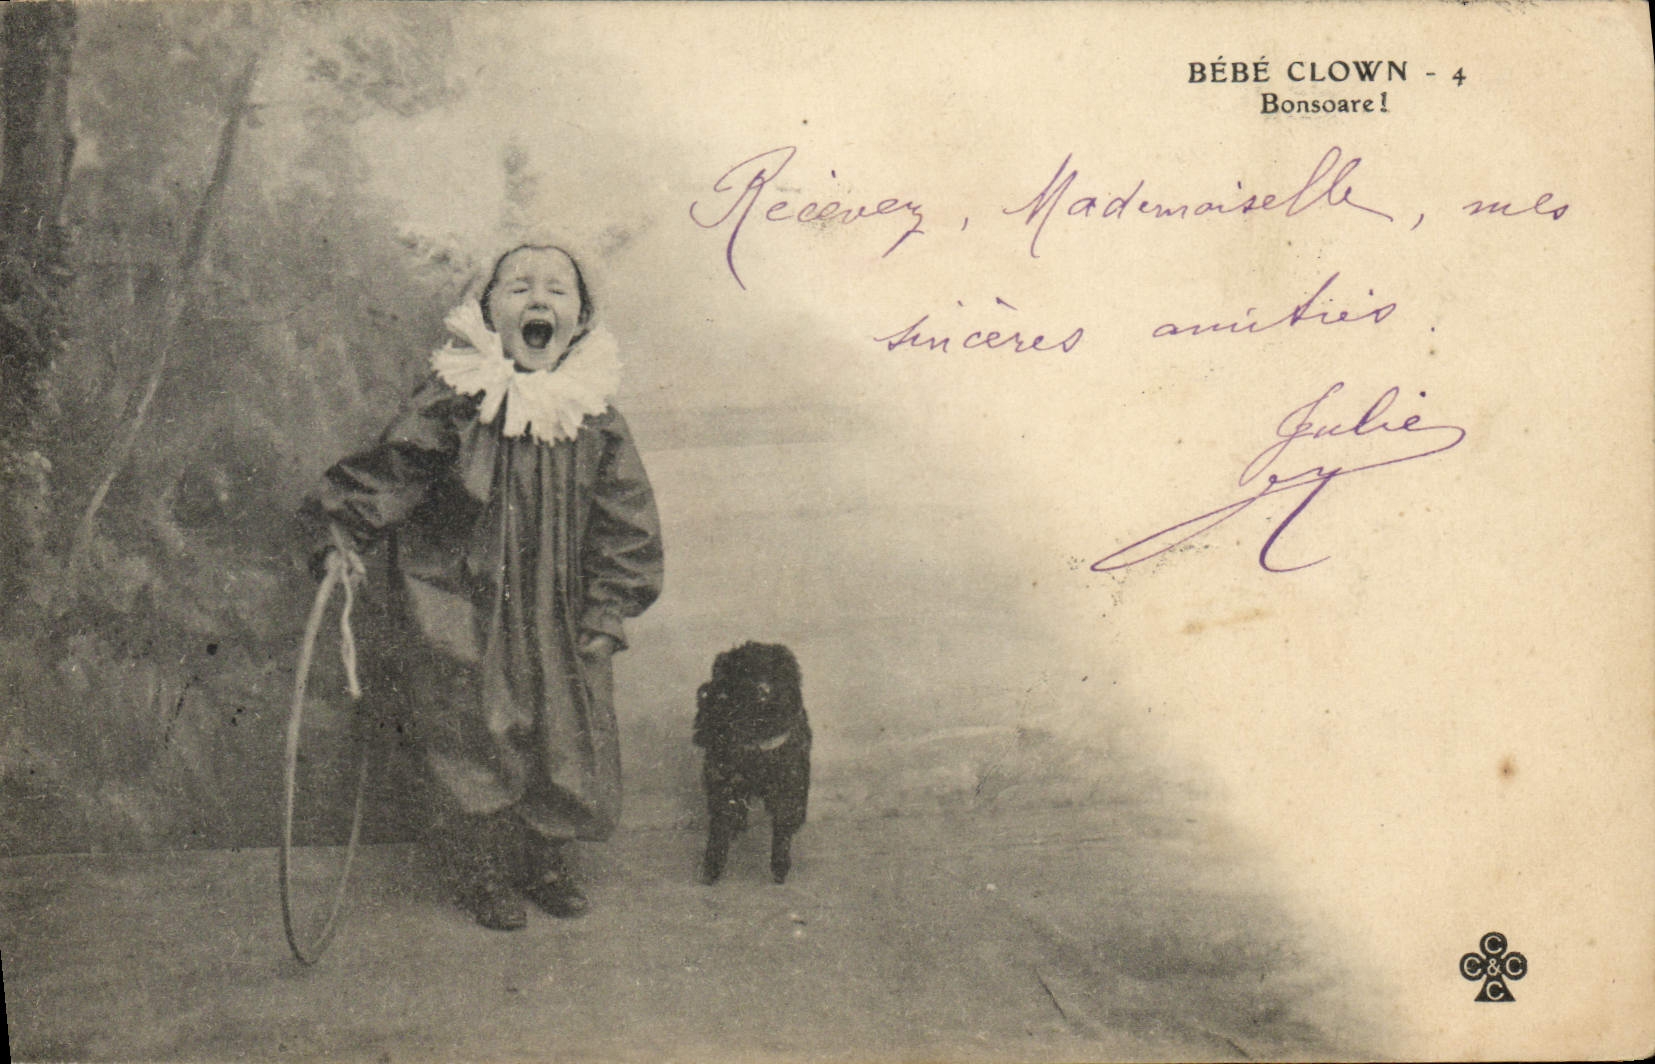 BÉBÉ CLOWN - 4
Bonsoare!
Récevez, Mademoiselle, mes
sincères amitiés.
Julie
C
C & C
C